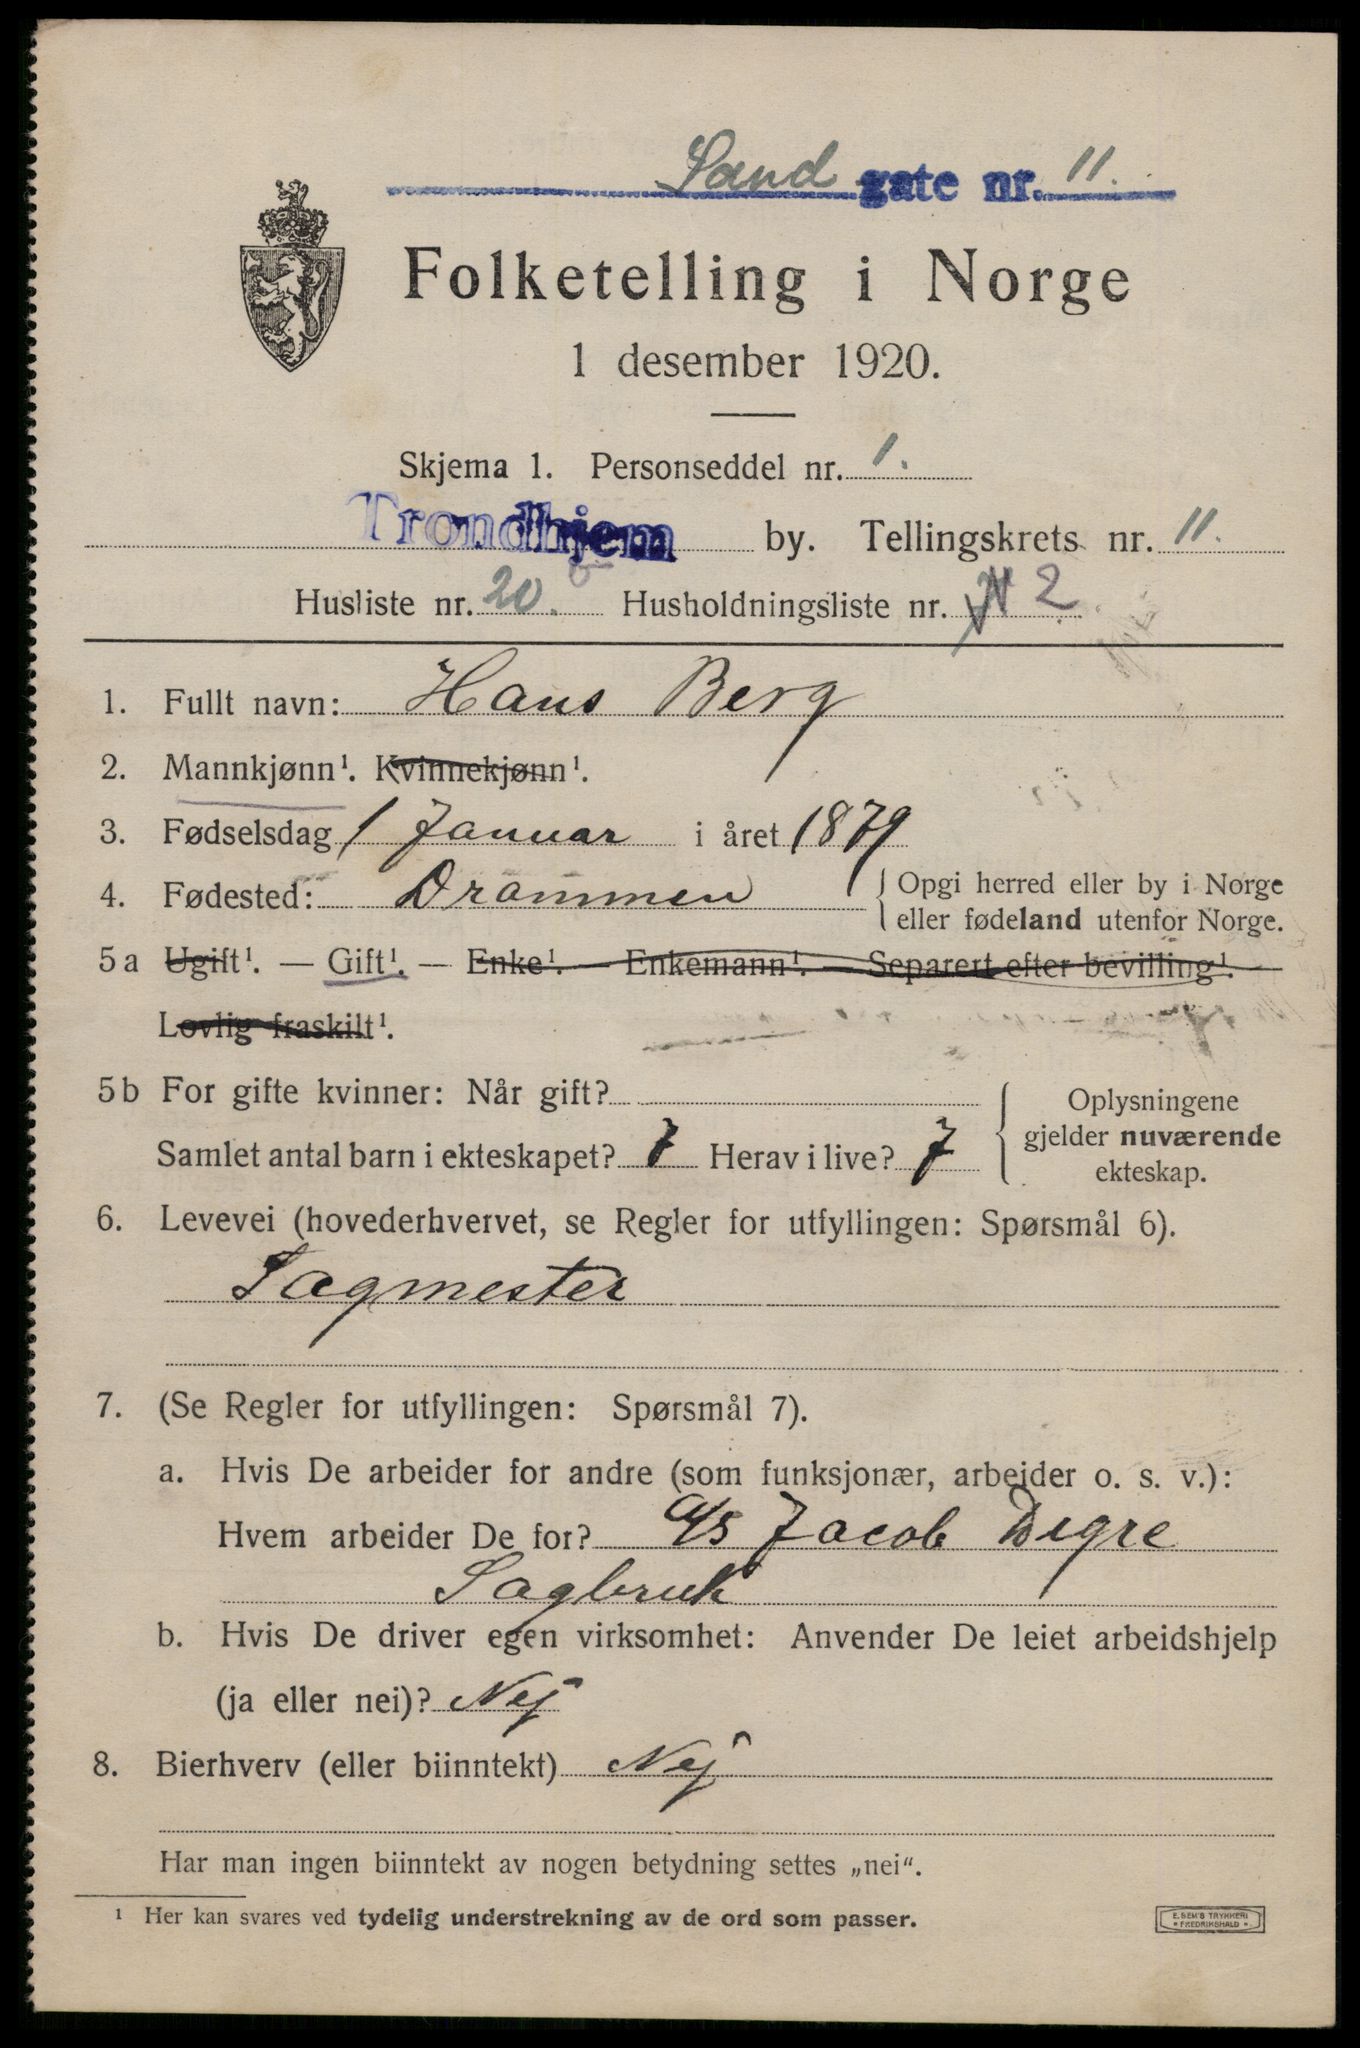 Sand gate nr. 11.
Folketelling i Norge
1 desember 1920.
Skjema 1. Personseddel nr. 1.
Trondhjem by. Tellingskrets nr. 11.
Husliste nr. 20. Husholdningsliste nr. 2
1. Fullt navn: Hans Berg
2. Mannkjønn¹. Kvinnekjønn¹.
3. Fødselsdag 1 Januar i året 1879
4. Fødested: Drammen { Opgi herred eller by i Norge
eller fødeland utenfor Norge.
5a Ugift¹. — Gift¹. — Enke¹. — Enkemann¹. — Separert efter bevilling¹. —
Lovlig fraskilt¹.
5b For gifte kvinner: Når gift?
Samlet antal barn i ekteskapet? 7 Herav i live? 7
Oplysningene
gjelder nuværende
ekteskap.
6. Levevei (hovederhvervet, se Regler for utfyllingen: Spørsmål 6).
Sagmester
7. (Se Regler for utfyllingen: Spørsmål 7).
a. Hvis De arbeider for andre (som funksjonær, arbeider o. s. v.):
Hvem arbeider De for? A/S Jacob Digre
Sagbruk
b. Hvis De driver egen virksomhet: Anvender De leiet arbeidshjelp
(ja eller nei)? Nej
8. Bierhverv (eller biinntekt) Nej
Har man ingen biinntekt av nogen betydning settes „nei".
¹ Her kan svares ved tydelig understrekning av de ord som passer.
E. SEM'S TRYKKERI
* FREDRIKSHALD *